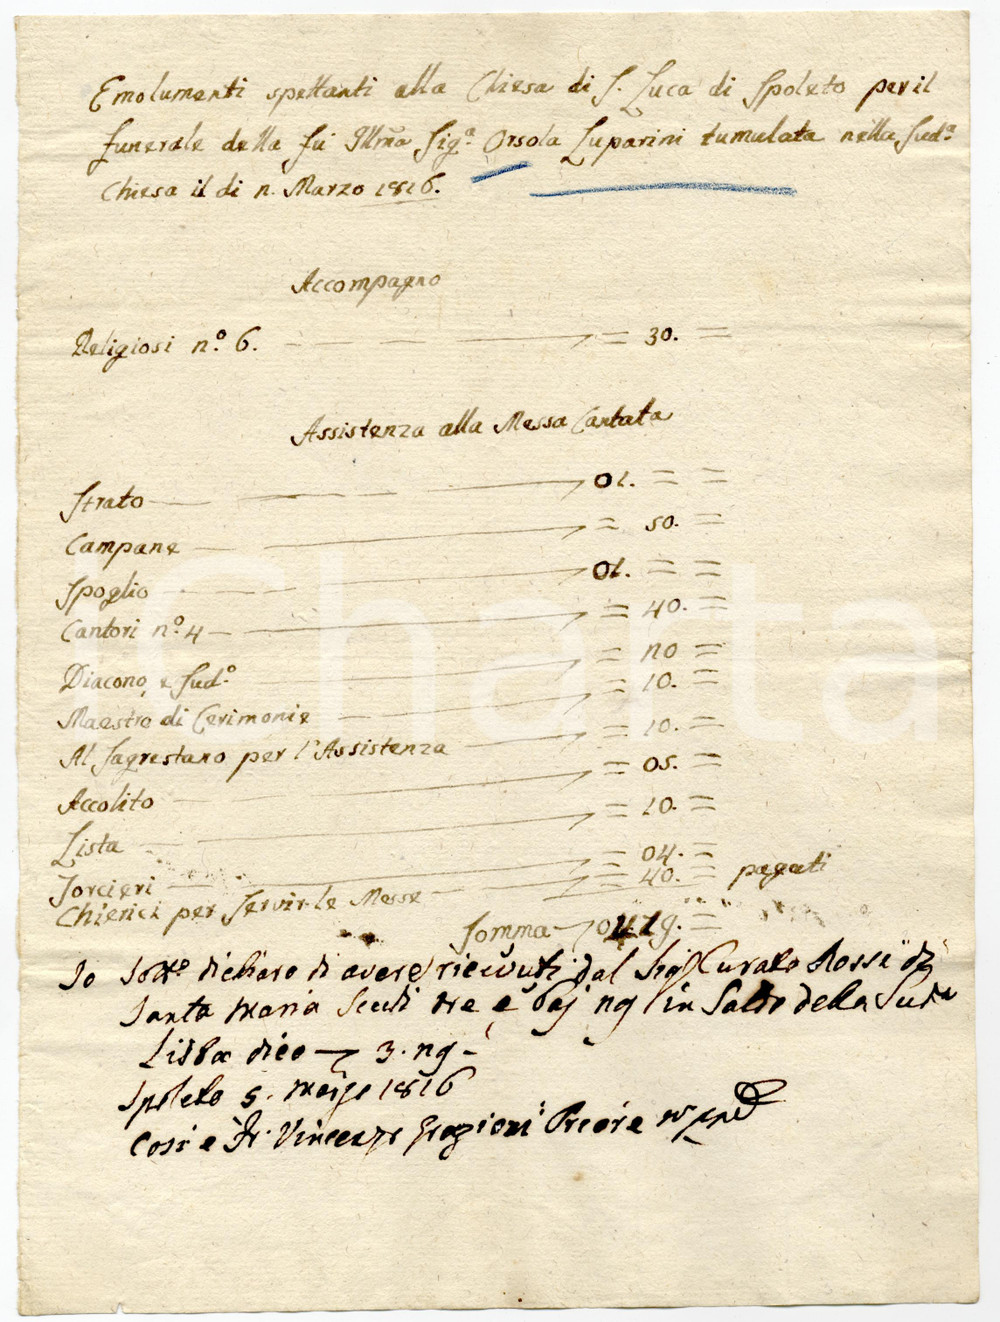 Emolumenti spettanti alla Chiesa di S. Luca di Spoleto per il
funerale della fù Illma Sigª Orsola Luparini tumulata nella Sudª
Chiesa il di n. Marzo 1816.
Accompagno
Religiosi nº 6. = 30. =
Assistenza alla Messa Cantata
Strato 01. = =
Campane = 50. =
Spoglio 01. = =
Cantori nº 4 = 40. =
Diacono, e Sudº = no =
Maestro di Cerimonie = 10. =
Al Sagrestano per l'Assistenza = 10. =
Accolito = 05. =
Lista = 10. =
Torcieri = 04. =
Chierici per servir le Messe = 40. = pagati
Somma
Io Sottº dichiaro di avere ricevuti dal Sigr Curato Rossi di
Santa Maria Scudi tre e baj ng in Saldo della Sudª
Lista dico 3. ng -
Spoleto 5. Marzo 1816
Così è Fr. Vincenzo Graziani Priore
iCharta